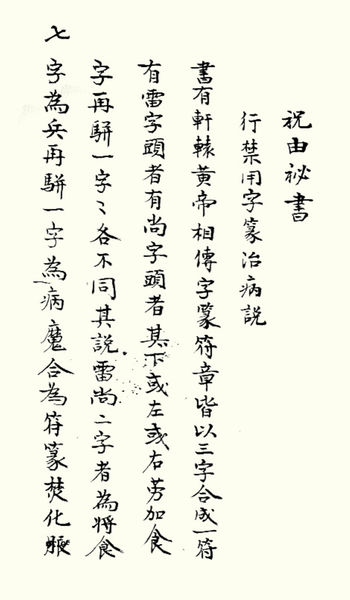 祝由祕書
行禁用字篆治病説
書有軒轅黄帝相傳字篆符章皆以三字合成一符
有雷字頭者有尚字頭者其下或左或右旁加食
字再駢一字〻各不同其説雷尚二字者為將食
字為兵再駢一字為病魔合為符篆焚化賬
七